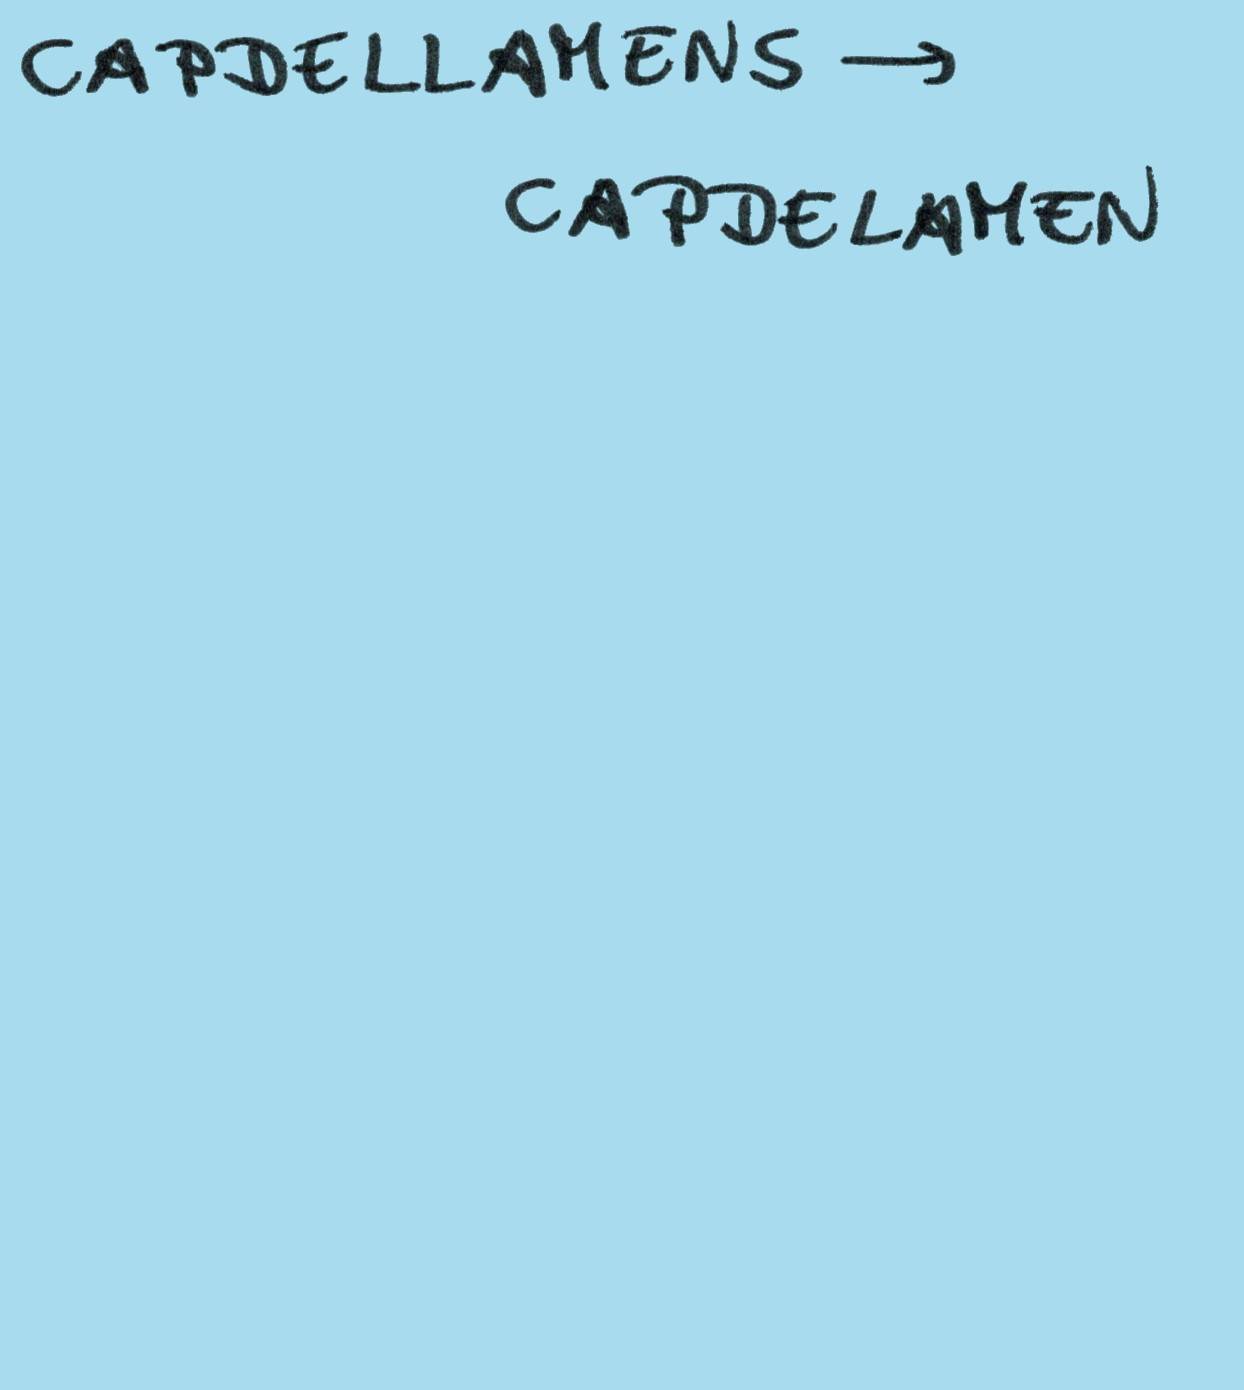 CAPDELLAMENS →
CAPDELAMEN